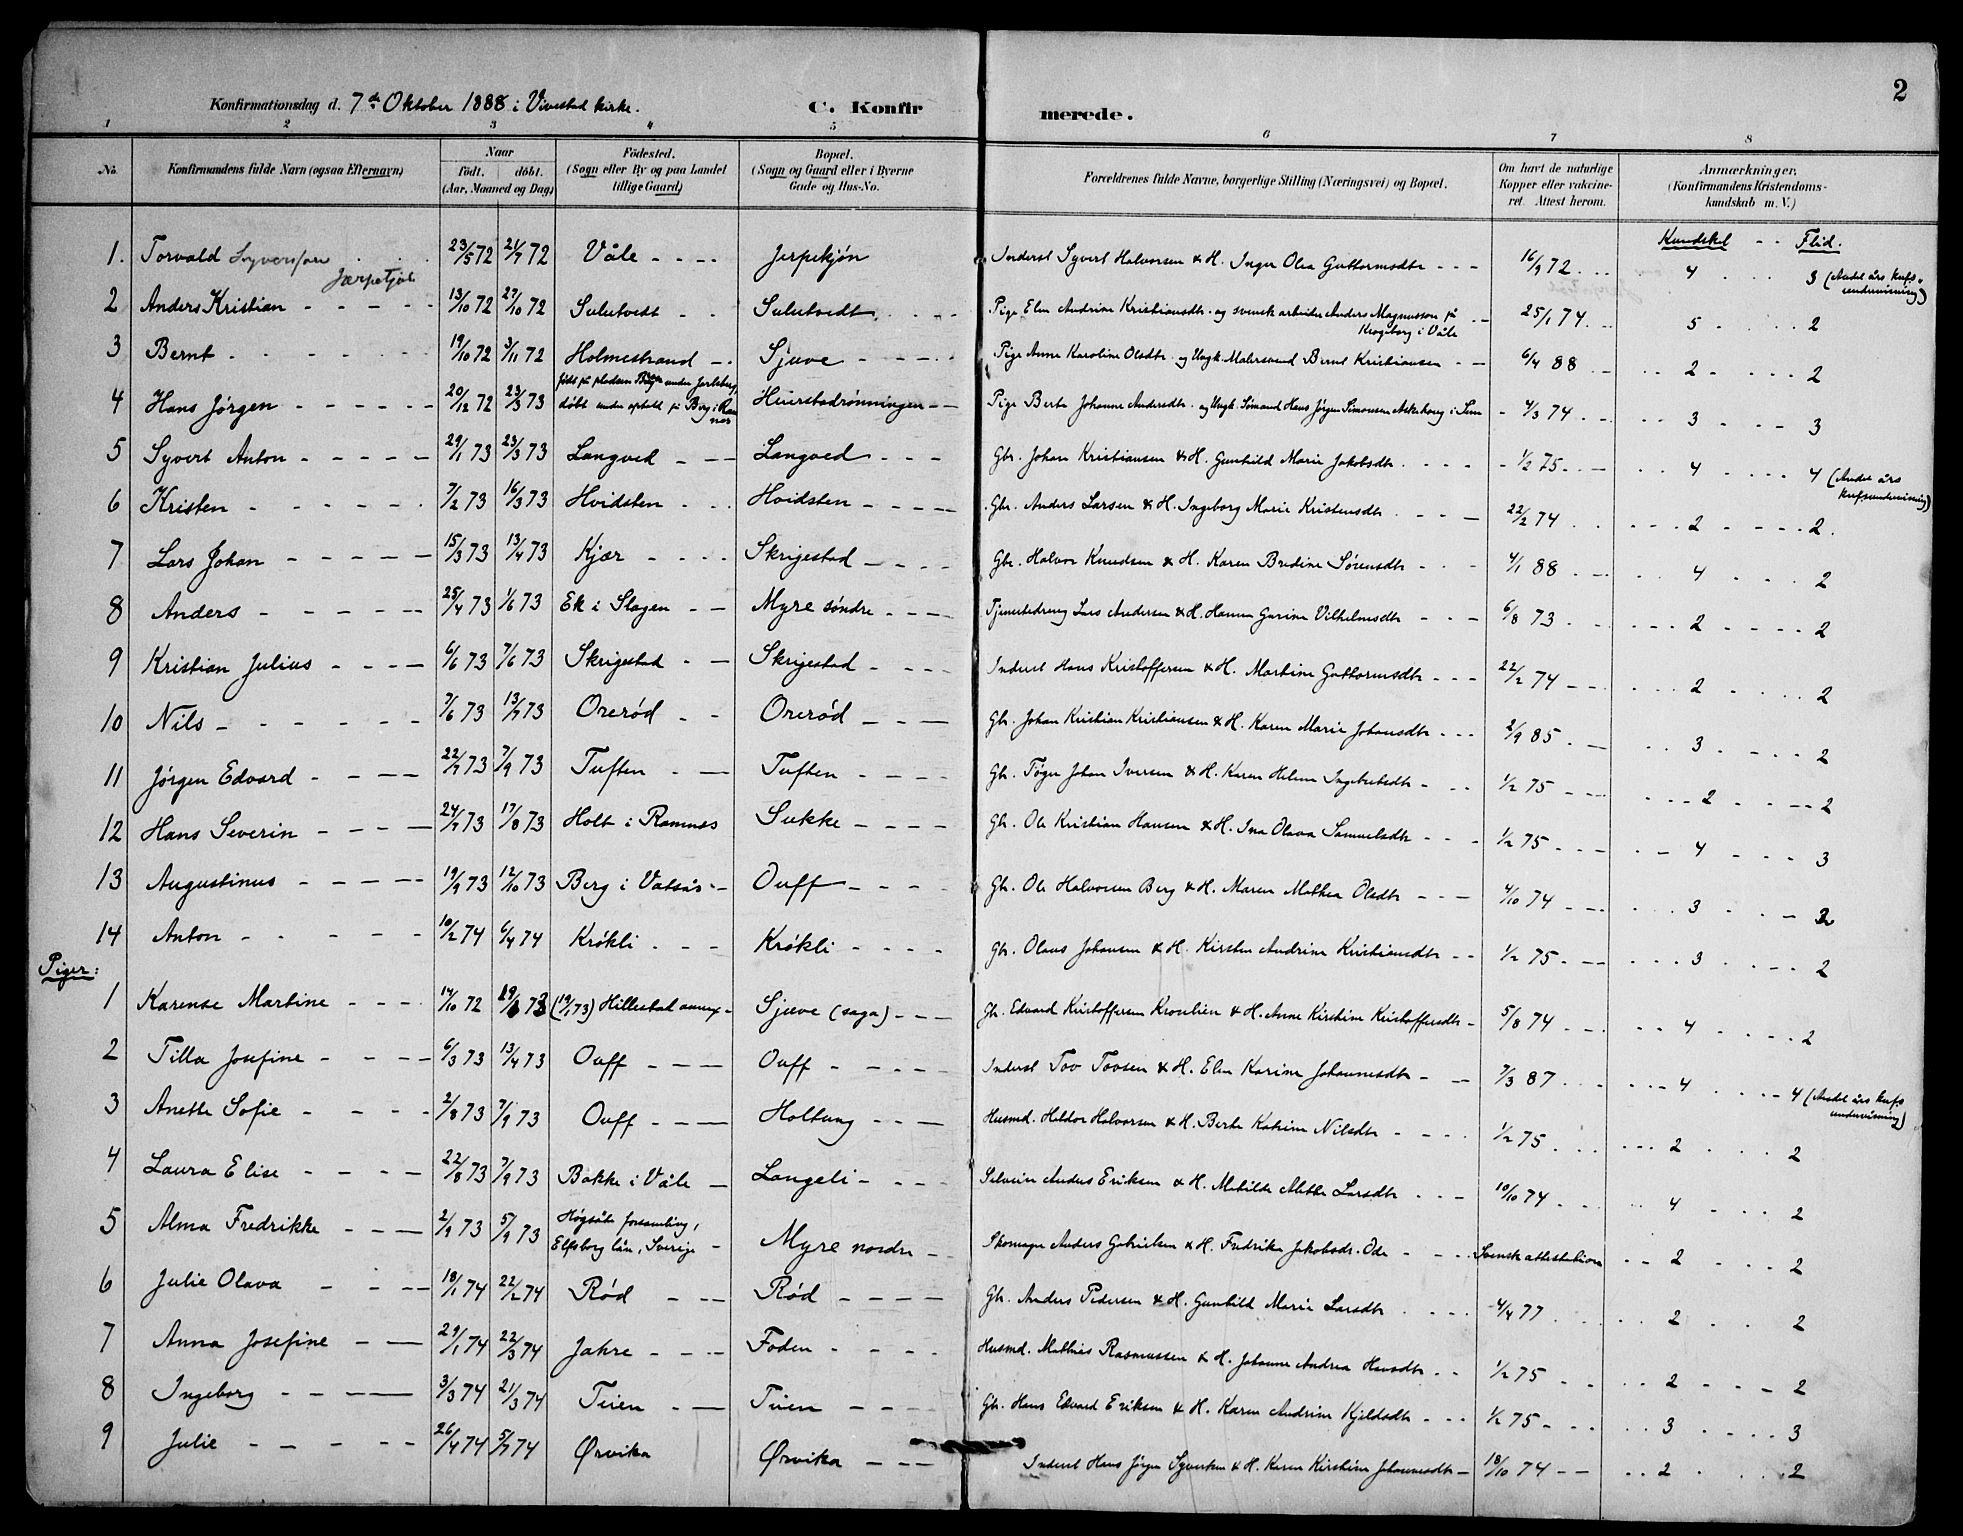 2
Konfirmationsdag d. 7de Oktober 1888 i Vivestad kirke. C. Konfirmerede.
1 2 3 4 5 6 7 8
No. Konfirmandens fulde Navn (ogsaa Efternavn) Naar födt. döbt. (Aar, Maaned og Dag) Födested. (Sogn eller By og paa Landet tillige Gaard) Bopæl. (Sogn og Gaard eller i Byerne Gade og Hus-No. Forældrenes fulde Navne, borgerlige Stilling (Næringsvei) og Bopæl. Om havt de naturlige Kopper eller vakcineret. Attest herom. Anmærkninger. (Konfirmandens Kristendomskundskab m. V.)
Kundskab -- Flid.
1. Torvald Syversen Jærpekjøn 23/5 72 21/7 72 Våle Jerpekjøn Inderst Syvert Halvorsen & H. Inger Olea Guttormsdtr 16/9 72 4 3 (Andet års kufsundervisning)
2 Anders Kristian 13/10 72 27/10 72 Sulutvedt Sulutvedt Pige Elen Andrine Kristiansdtr. og svensk arbeider Anders Magnussen på Krogborg i Våle 25/1 74 5 2
3 Bernt 19/10 72 3/11 72 Holmestrand Sjuve Pige Anne Karoline Olsdtr. og Ungk. Malersvend Bernt Kristiansen 6/4 88 2 2
4 Hans Jørgen 20/12 72 23/3 73 født på pladsen under Jarlsberg, døbt under ophold på Berg i Ramnes Heierstadrønningen Pige Berte Johanne Andersdtr. og Ungk. Sømand Hans Jørgen Simonsen i Sem 4/3 74 3 3
5 Syvert Anton 29/1 73 23/3 73 Langved Langved Gbr. Johan Kristiansen & H. Gunhild Marie Jakobsdtr. 1/2 75 4 4 (Andet års kufsundervisning)
6 Kristen 7/2 73 16/3 73 Hvidsten Hvidsten Gbr. Anders Larsen & H. Ingeborg Marie Kristensdtr. 22/2 74 2 2.
7 Lars Johan 15/3 73 13/4 73 Kjær Skrigestad Gbr. Halvor Knudsen & H. Karen Bredine Sørensdtr 4/1 88 4 2
8 Anders 25/4 73 1/6 73 Ek i Slagen Myre søndre Tjenestedreng Lars Andersen & H. Hanna Gurine Vilhelmsdtr 6/8 73 2 2
9 Kristian Julius 6/6 73 7/6 73 Skrigestad Skrigestad Inderst Hans Kristoffersen & H. Martine Guttormsdtr 22/2 74 2 2
10 Nils 7/6 73 13/7 73 Orerød Orerød Gbr. Johan Kristian Kristiansen & H. Karen Marie Johansdtr 2/9 85 3 2
11 Jørgen Edvard 22/7 73 7/9 73 Tuften Tuften Gbr. Tøger Johan Iversen & H. Karen Helene Ingebretsdtr 1/2 75 2 2
12 Hans Severin 24/7 73 17/8 73 Holt i Ramnes Sukke Gbr. Ole Kristian Hansen & H. Ina Olava Samuelsdtr 1/2 75 4 3
13 Augustinus 19/9 73 12/10 73 Berg i Vatsås Ouff Gbr. Ole Halvorsen Berg & H. Maren Mathea Olsdtr 4/10 74 3 2
14 Anton 10/2 74 6/4 74 Krøkli Krøkli Gbr. Olaus Johansen & H. Kirsten Andrine Kristiansdtr 1/2 75 3 2
Piger:
1 Karense Martine 14/10 72 (19/1 73) Hillestad annex Sjuve (saga) Gbr. Edvard Kristoffersen & H. Anne Kirstine Kristoffersdtr 5/8 74 4 2
2 Tilla Josefine 6/3 73 13/4 73 Ouff Ouff Inderst Tov Tovsen & H. Elen Karine Johannesdtr 7/3 87 4 4 (Andet års kufsundervisning)
3 Anette Sofie 2/8 73 7/9 73 Ouff Holtung Husmd. Heldor Halvorsen & H. Berte Katrine Nilsdtr 1/2 75 2 2
4 Laura Elise 22/8 73 7/9 73 Bakke i Våle Langeli Selveier Anders Eriksen & H. Matilde Mathea Larsdtr 10/10 74 4 2
5 Alma Fredrikke 2/9 73 5/9 73 Høgsäte forsamling, Elfsborg län, Sverige Myre nordre Skomager Anders Gabrielsen & H. Fredrika Jakobsdr. Ode Svensk attestation 2 2
6 Julie Olava 18/1 74 22/2 74 Rød Rød Gbr. Anders Pedersen & H. Gunhild Marie Larsdtr 4/4 77 2 2
7 Anna Josefine 29/1 74 22/3 74 Jahre Foden Husmd. Mathias Rasmussen & H. Johanne Andrea Hansdtr 1/2 75 2 2
8 Ingeborg 3/3 74 21/3 74 Tiren Tiren Gbr. Hans Edvard Eriksen & H. Karen Andrine Kjeldsdtr 1/2 75 3 3
9 Julie 26/4 74 5/7 74 Ørvika Ørvika Inderst Hans Jörgen Syvertsen & H. Karen Kirstine Johannesdtr 18/10 74 2 2